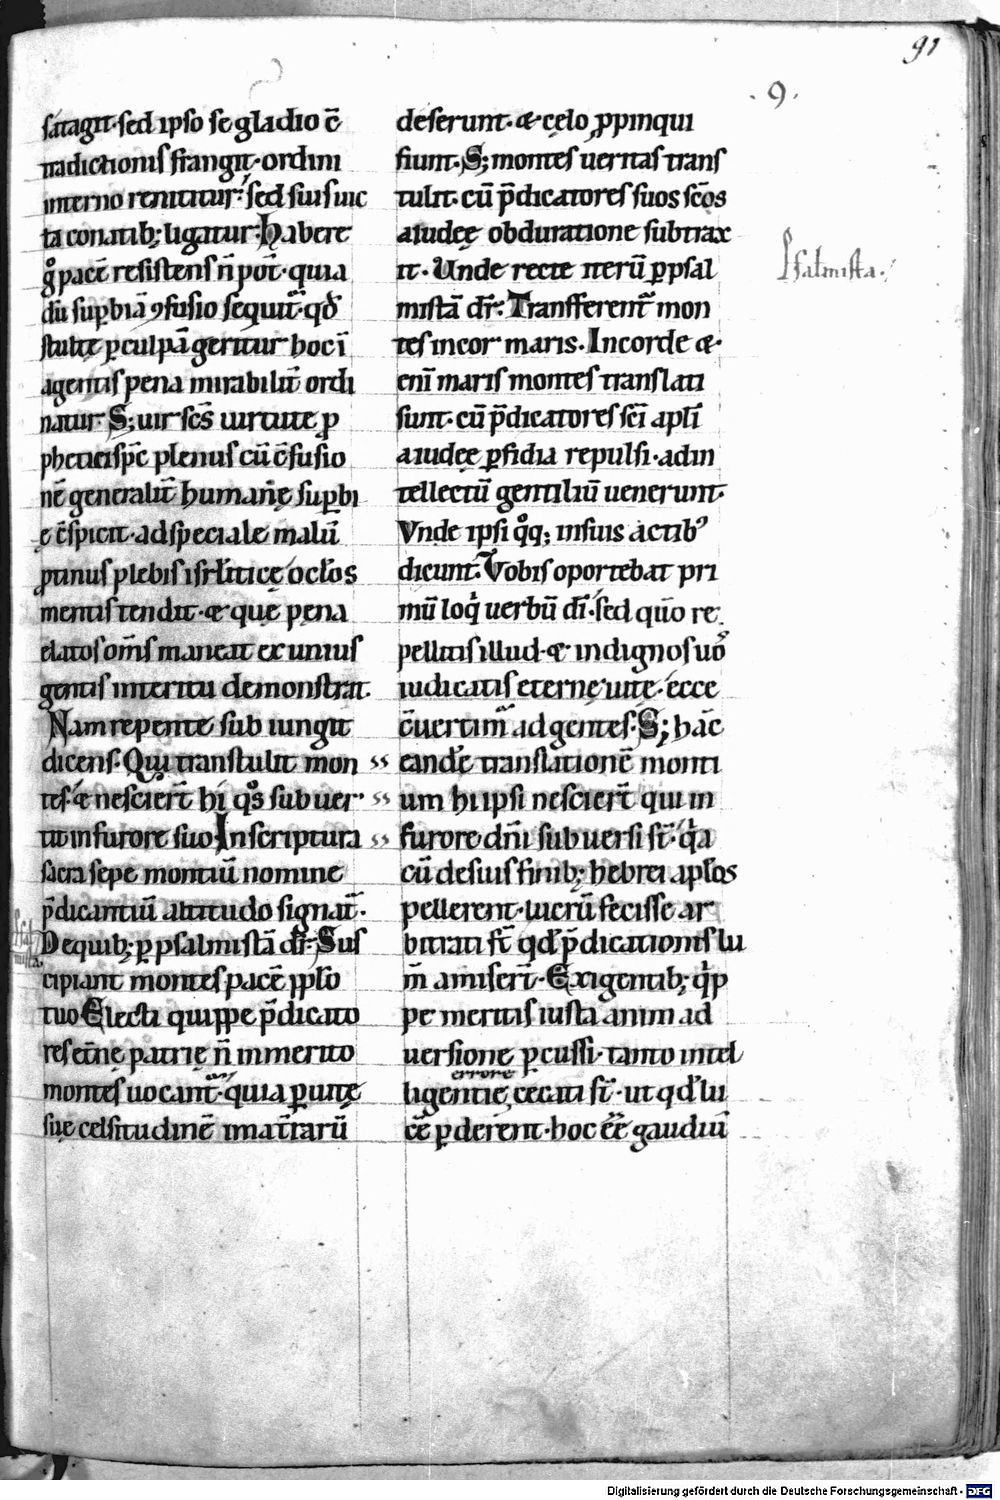 91
.9.
satagit·sed ipso se gladio c̄
tradictionis frangit·ordini
interno renititur: sed suis uic
ta conatib; ligatur· Habere
g̊ pacē resistens n̄ pot̄·quia
dū sup̱biā ꝯfusio sequit̄·qd̄
stulte ꝑ culpā geritur hoc ī
agentis pena mirabilit̄ ordi
natur· S; uir sc̄s uirtute ꝓ
phetici sp̄c plenus cū c̄fusio
nē generalit̄ humanę suꝑbi
ę c̄spicit·ad speciale malū
ꝓtinus plebis isrl̄iticę ocl̄os
mentis tendit·& quę pena
elatos om̄s maneat ex unius
gentis interitu demonstrat·
Nam repente sub iungit
dicens· Qui transtulit mon
tes·& nescier̄t hi q̊s subuer
tit in furore suo In scriptura
sacra sepe montiū nomine
p̄dicantiū altitudo signat̄·
De quib; ꝑ psalmistā dr̄· Sus
cipiant montes pacē pp̄lo
tuo Electi quippe p̄dicato
res et̄nę patrię n̄ inmerito
montes uocant̄·quia ꝑ uitę
suę celsitudinē ima t̄rarū
deserunt·& cęlo ꝓpinqui
fiunt· S; montes ueritas trans
tulit·cū p̄dicatores suos sc̄os
a iudeę obduratione subtrax
it· Unde recte iterū ꝑ psal
mistā dr̄: Transferent̄ mon
tes in cor maris. In corde &
eni maris montes translati
sunt·cū p̄dicatores sc̄i apl̄i
a iudeę ꝑfidia repulsi·ad in
tellectū gentiliū uenerunt·
Vnde ipsi q̊q; in suis actib᾽
dicunt· Vobis oportebat pri
mū loqi uerbū dī·sed qūo re
pellitis illud·& indignos uō
iudicatis eternę uitę·ecce
c̄uertim̄ ad gentes· S; hāc
eand̄e translationē monti
um hi ipsi nescier̄t qui in
furore dn̄i subuersi st̄·qa
cū de suis finib; hebrei apl̄os
pellerent·lucrū fecisse ar
bitrati st̄ qd̄ p̄dicationis lu
m̄ amiser̄t· Exigentib; qip
pe meritis iusta animad
uersione ꝑcussi·tanto intel
errore
ligentię cęcati st̄·ut qd̄ lu
cē ꝑderent·hoc eē gaudiū
Psalmista.
Digitalisierung gefördert durch die Deutsche Forschungsgemeinschaft - DFG